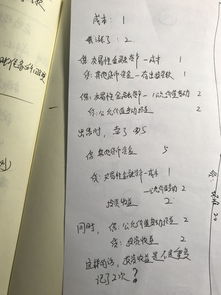 成本：1
涨了：2
借：交易性金融资产—成本 1
贷：其他货币资金—存出投资款 1
借：交易性金融资产—公允价值变动 2
贷：公允价值变动损益 2
出售时，卖了 5
借：其他货币资金 5
贷：交易性金融资产—成本 1
—公允价值变动 2
投资收益 2
同时，借：公允价值变动损益 2
贷：投资收益 2
这样的话，投资收益是不是重复
记了2次？